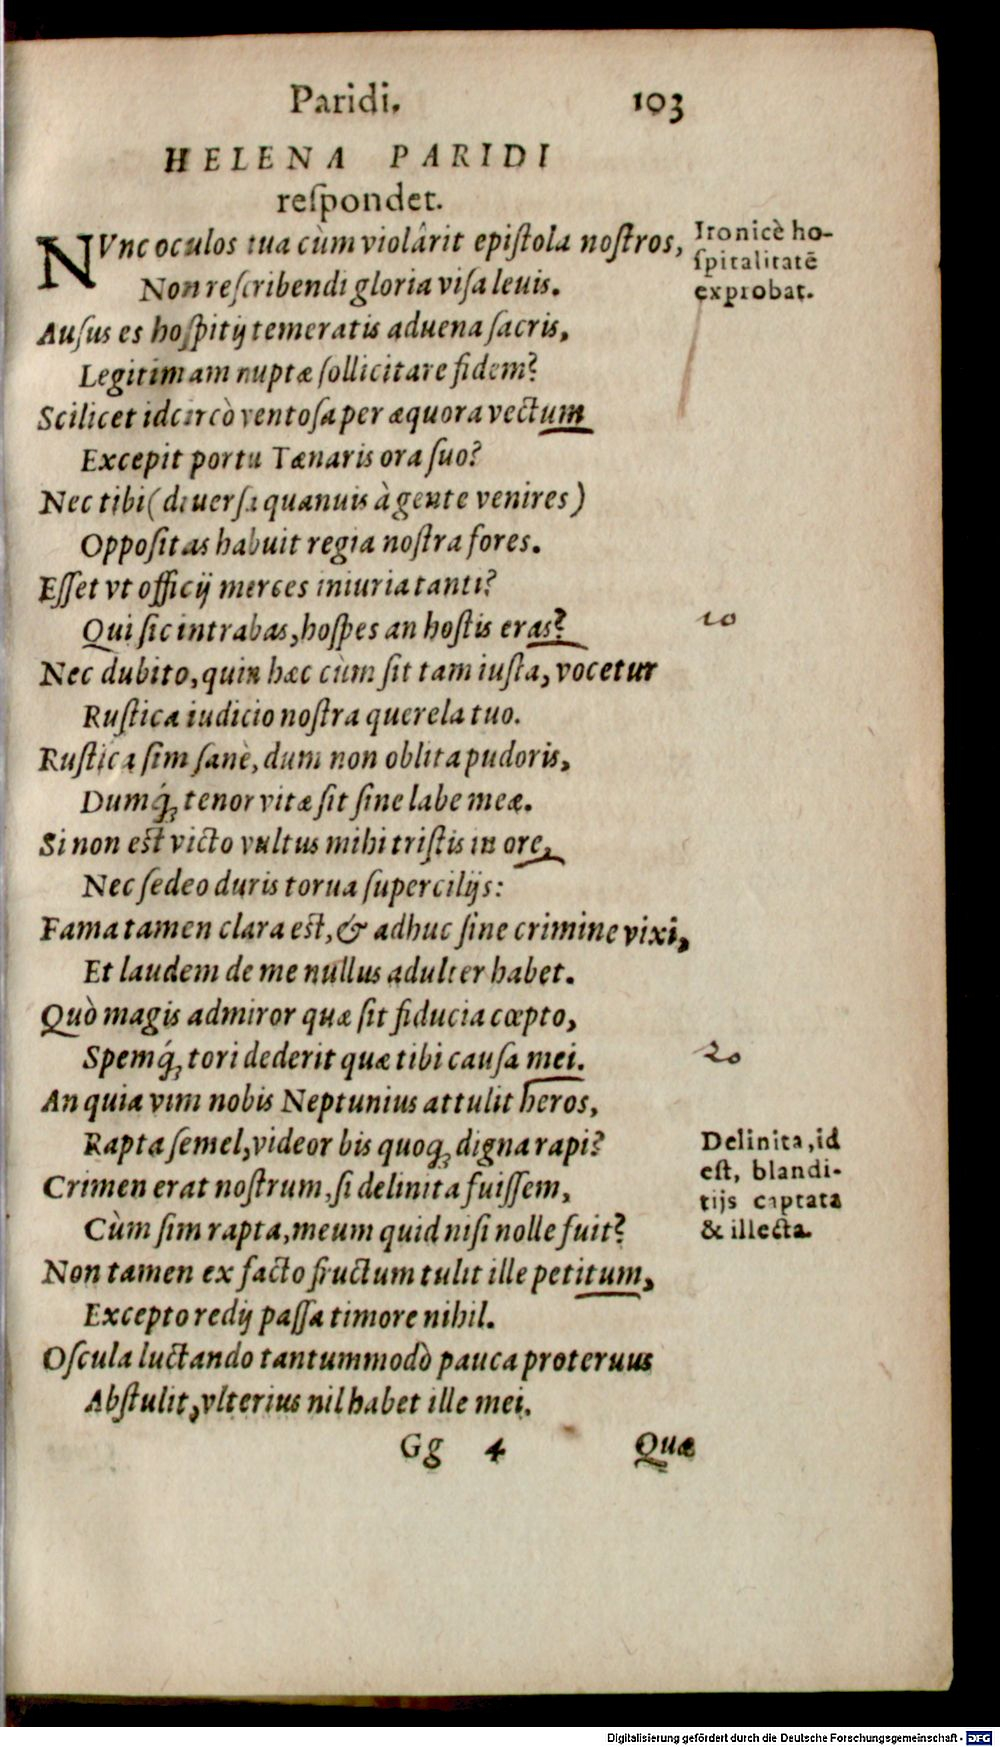 Paridi. 103
HELENA PARIDI
reſpondet.
NVnc oculos tua cùm violârit epiſtola noſtros,
Non reſcribendi gloria viſa leuis.
Auſus es hoſpitij temeratis aduena ſacris,
Legitimam nuptæ ſollicitare fidem?
Scilicet idcircò ventoſa per æquora vectum
Excepit portu Tænaris ora ſuo?
Nec tibi (diuerſa quanuis à gente venires)
Oppoſitas habuit regia noſtra fores.
Eſſet vt officij merces iniuria tanti?
Qui ſic intrabas, hoſpes an hoſtis eras?
Nec dubito, quin hæc cùm ſit tam iuſta, vocetur
Ruſtica iudicio noſtra querela tuo.
Ruſtica ſim ſanè, dum non oblita pudoris,
Dumq́; tenor vitæ ſit ſine labe meæ.
Si non eſt victo vultus mihi triſtis in ore,
Nec ſedeo duris torua ſupercilijs:
Fama tamen clara eſt, & adhuc ſine crimine vixi,
Et laudem de me nullus adulter habet.
Quò magis admiror quæ ſit fiducia cœpto,
Spemq́; tori dederit quæ tibi cauſa mei.
An quia vim nobis Neptunius attulit heros,
Rapta ſemel, videor bis quoq; digna rapi?
Crimen erat noſtrum, ſi delinita fuiſſem,
Cùm ſim rapta, meum quid niſi nolle fuit?
Non tamen ex facto fructum tulit ille petitum,
Excepto redij paſſa timore nihil.
Oſcula luctando tantummodò pauca proteruus
Abſtulit, vlterius nil habet ille mei.
Gg 4 Quæ
Ironicè ho-
ſpitalitatē
exprobat.
10
20
Delinita, id
eſt, blandi-
tijs captata
& illecta.
Digitalisierung gefördert durch die Deutsche Forschungsgemeinschaft - DFG